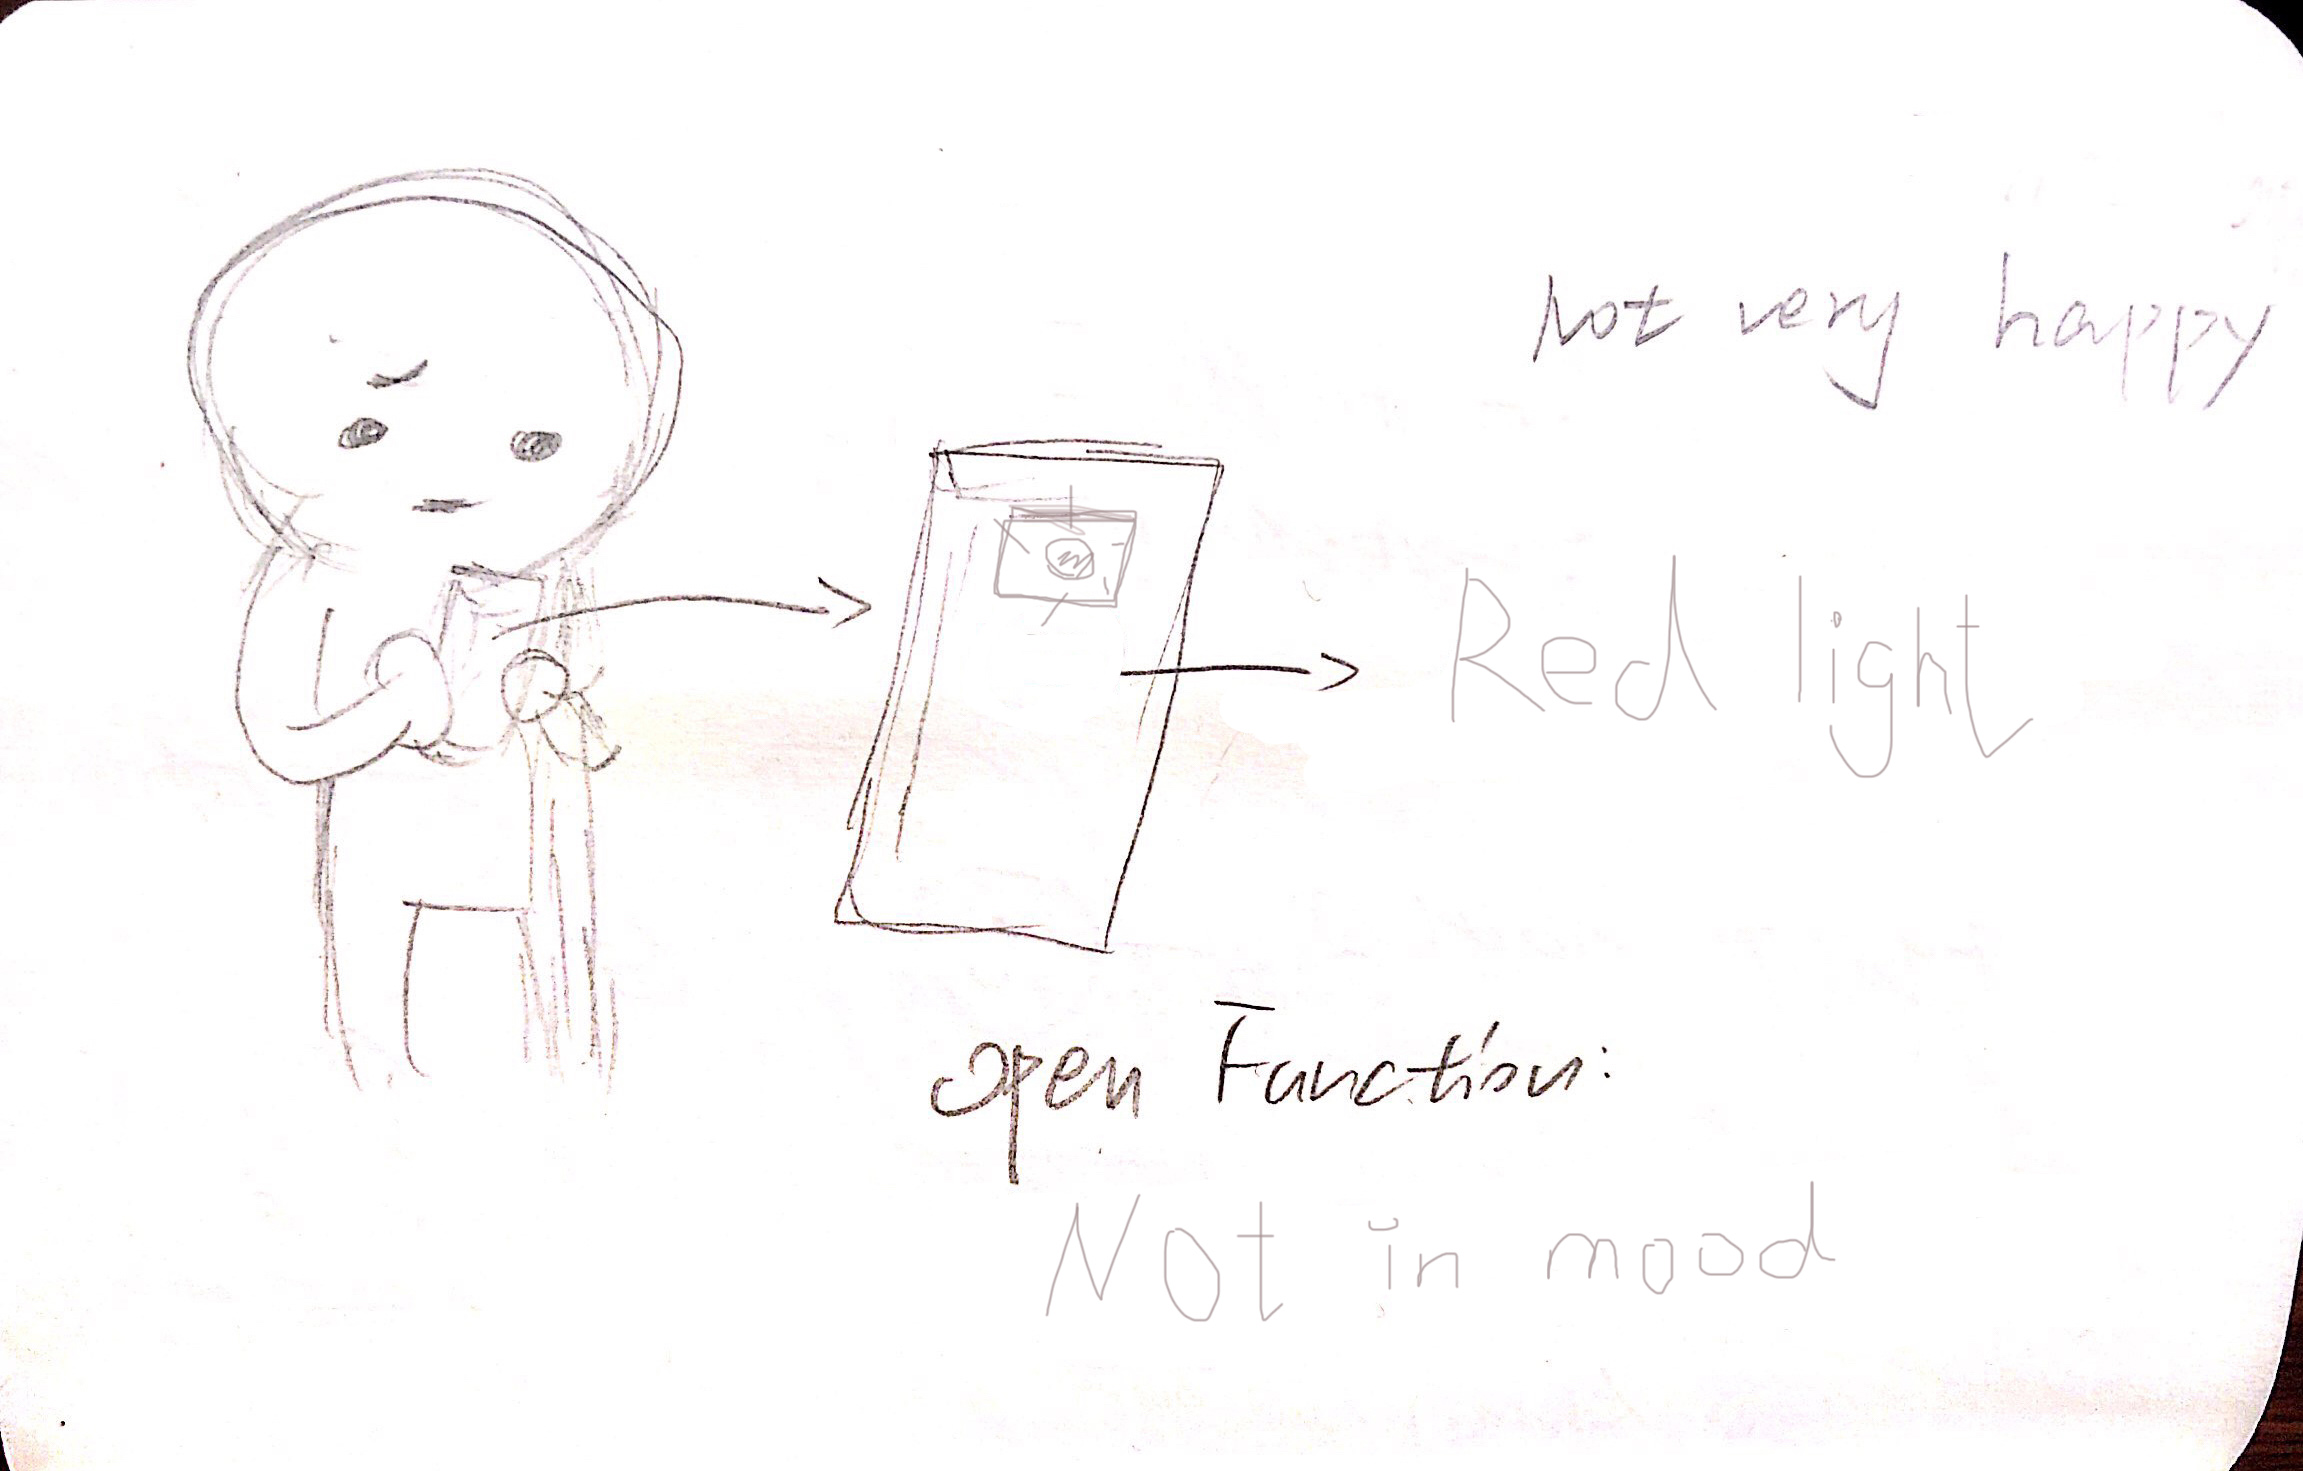 Not very happy
Red light
open Function:
Not in mood